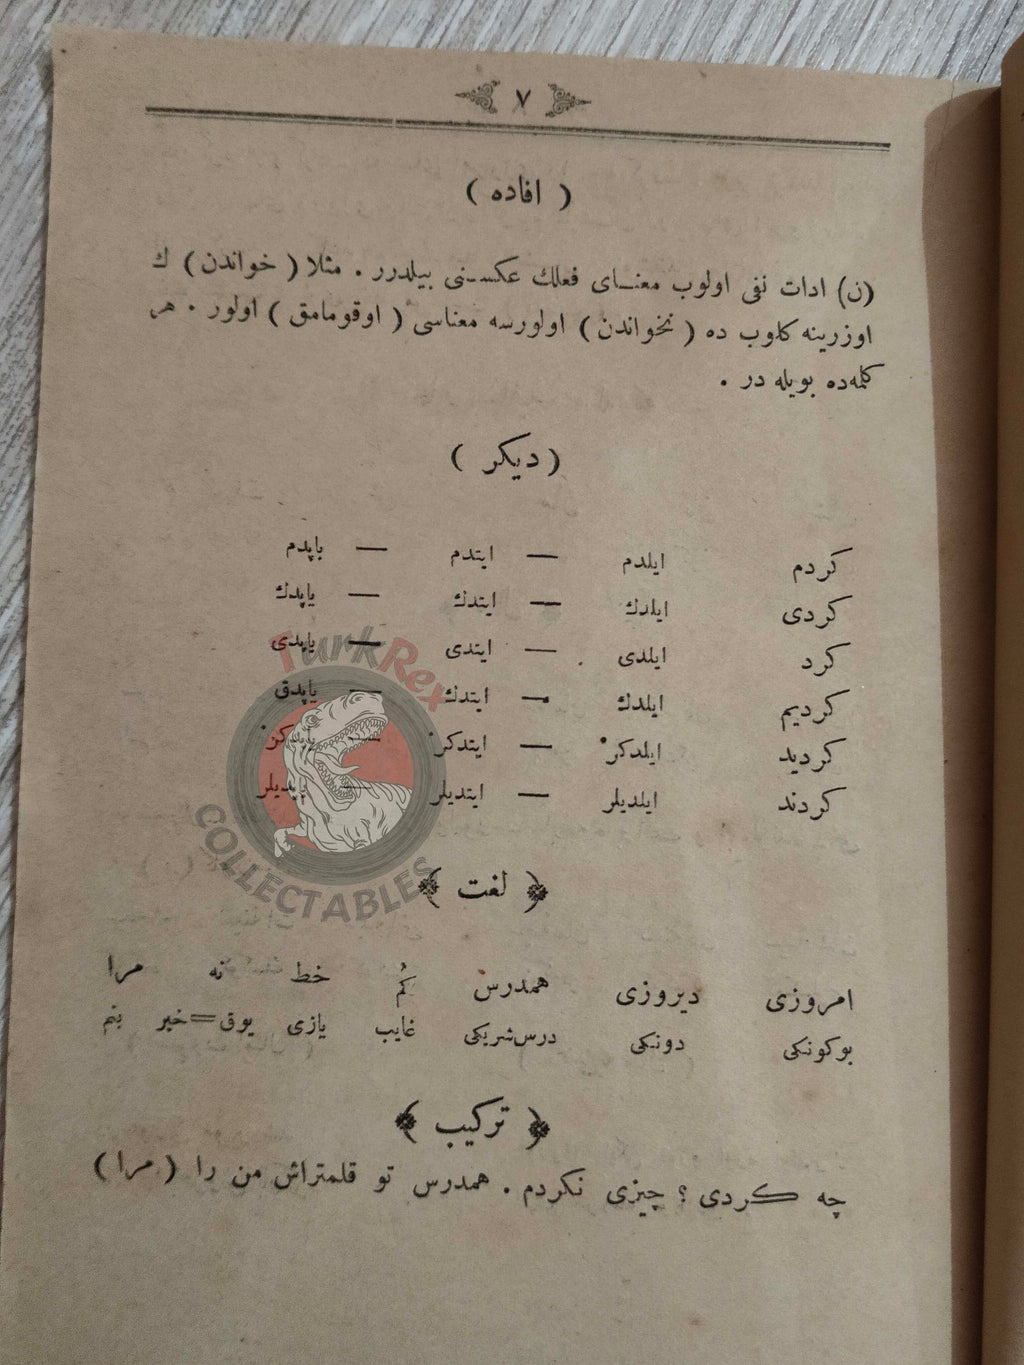 ٧
( افاده )
(ن) ادات نفى اولوب معنــاى فعلك عكسـنى بيلدرر . مثلا ( خواندن ) ك
اوزرينه كلوب ده ( نخواندن ) اولورسه معناسى ( اوقومامق ) اولور . هر
كلمه‌ده بويله در .
( ديكر )
كردم ايلدم — ايتدم — ياپدم
كردى ايلدك — ايتدك — ياپدك
كرد ايلدى — ايتدى — ياپدى
كرديم ايلدك — ايتدك — ياپدق
كرديد ايلدكز — ايتدكز —
كردند ايلديلر — ايتديلر — ياپديلر
TurkRex
COLLECTABLES
﴿ لغت ﴾
امروزى ديروزى همدرس كُم خط نه مرا
بوكونكى دونكى درس‌شريكى غايب يازى يوق=خير بنم
﴿ تركيب ﴾
چه كردى ؟ چيزى نكردم . همدرس تو قلمتراش من را ( مرا )